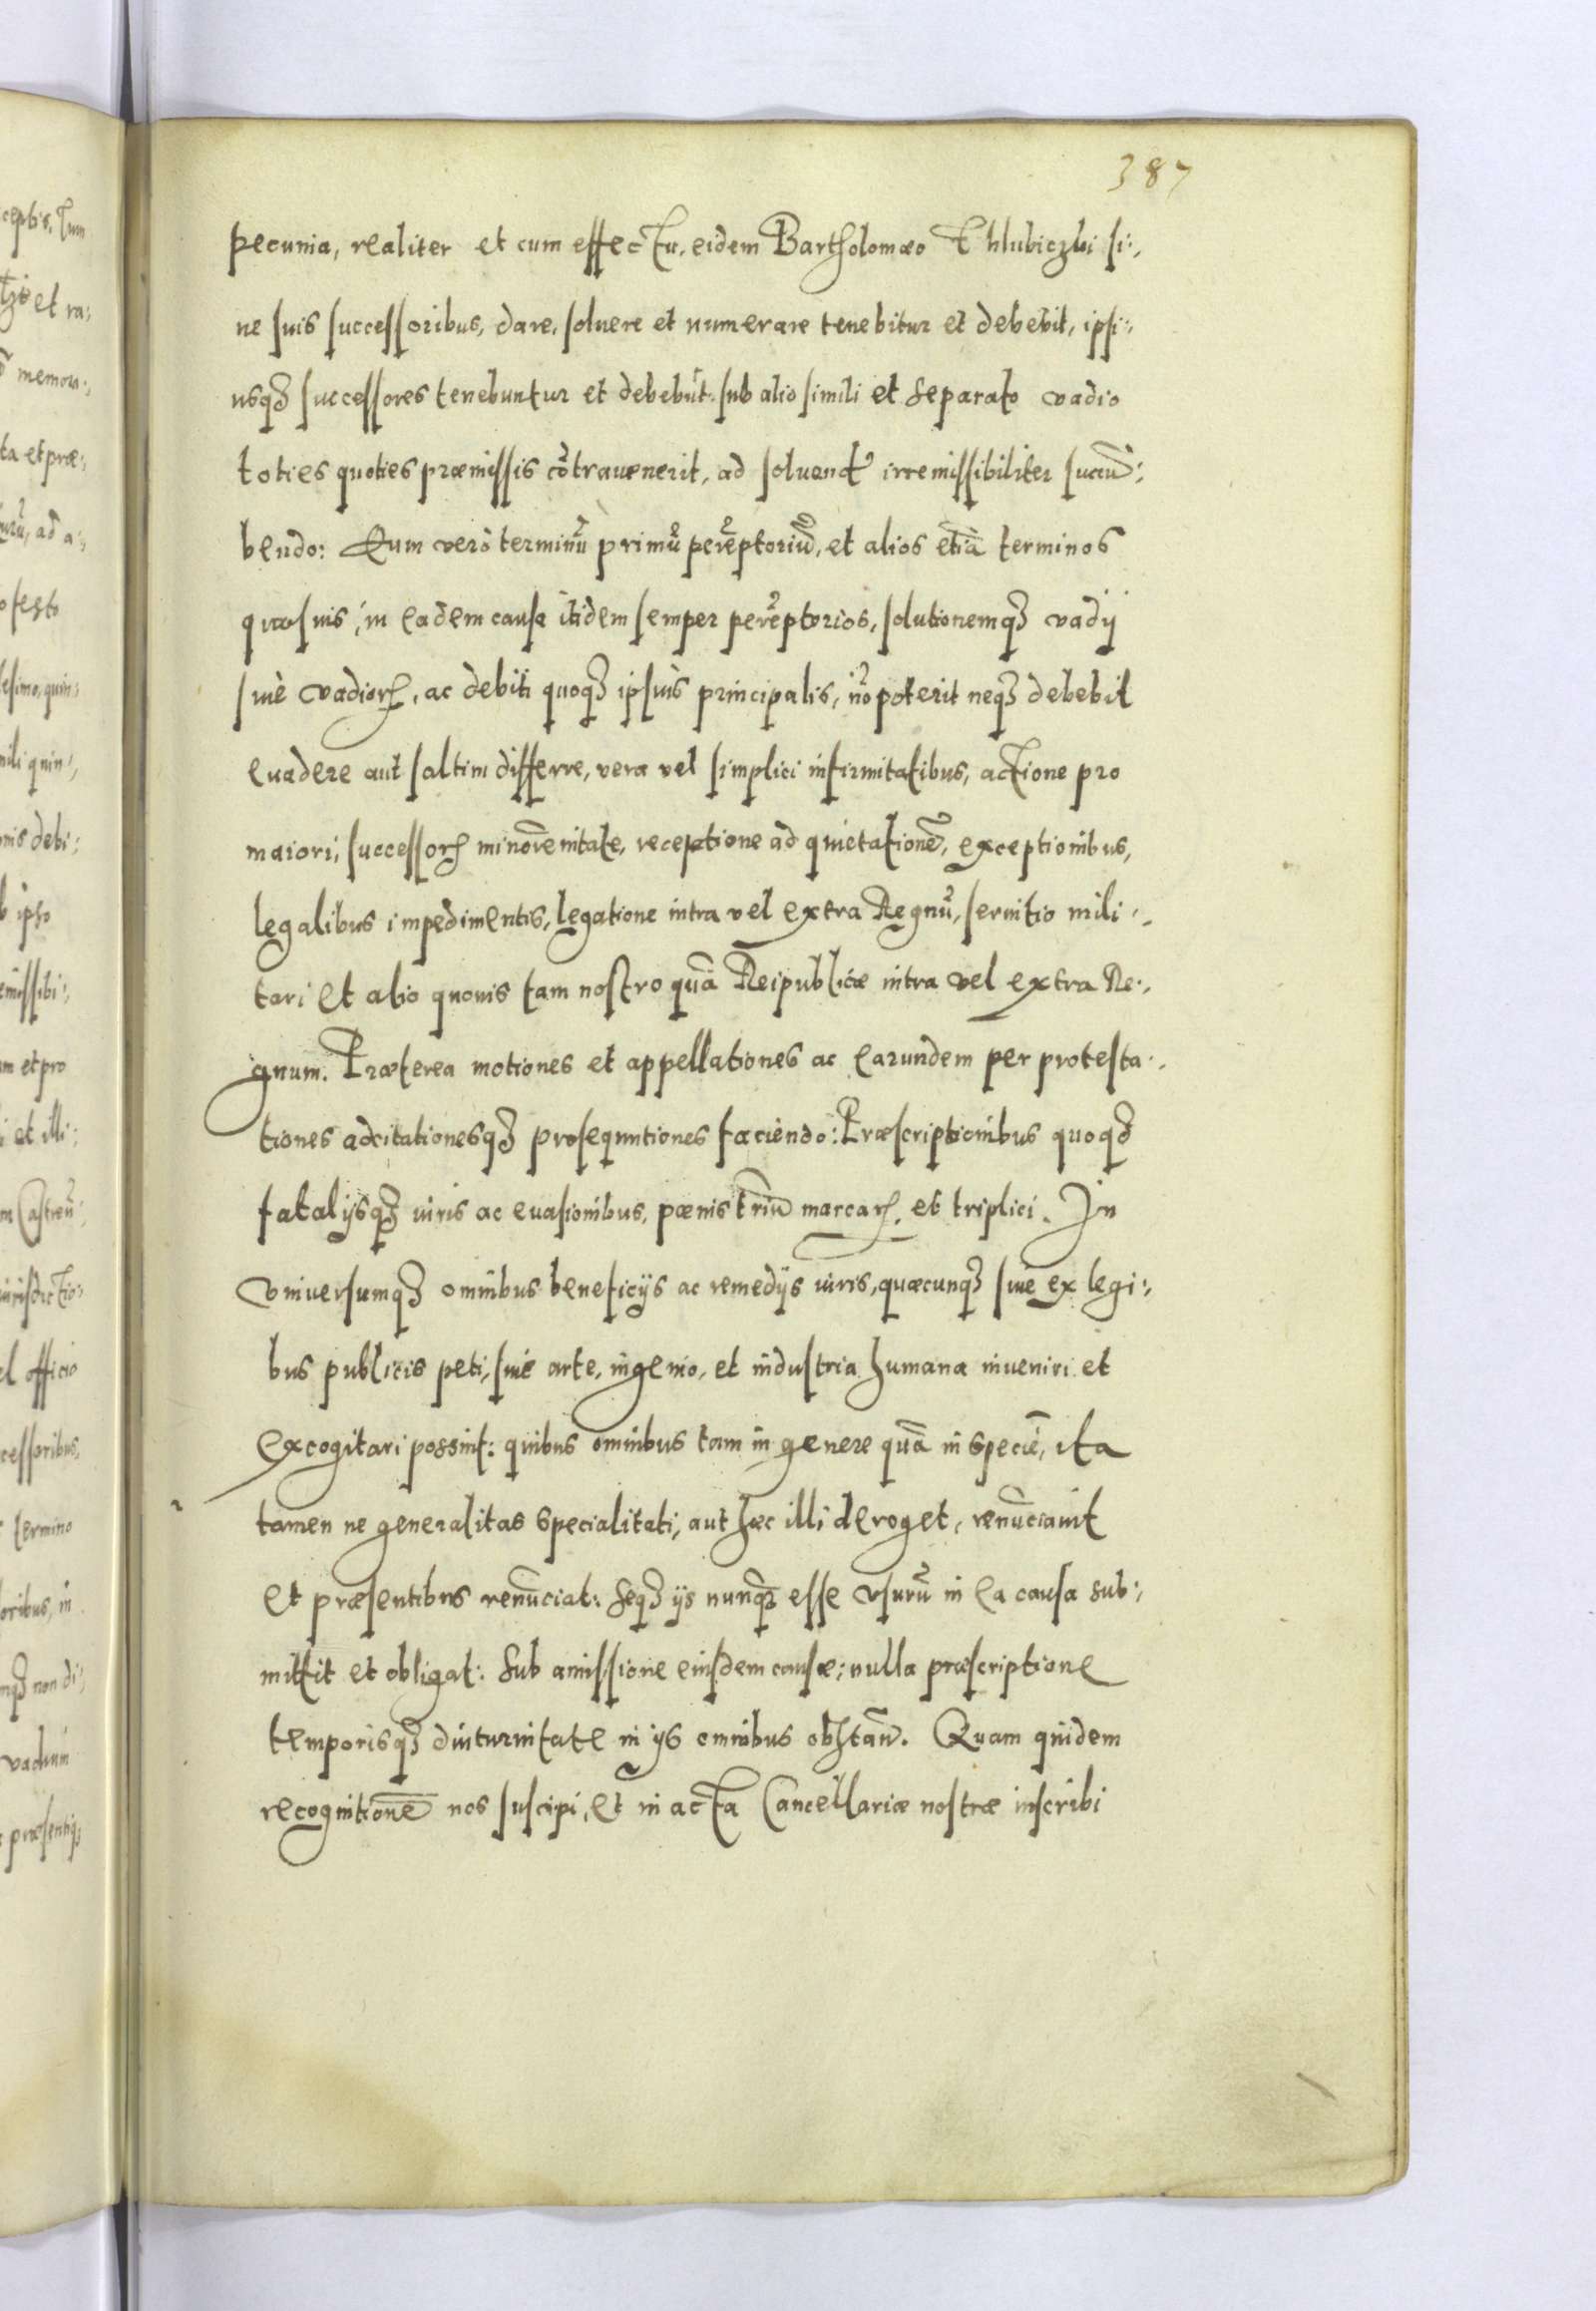 387
pecunia, realiter et cum effectu, eidem Bartholomæo Chlubiczki si:,
ne suis successoribus, dare, soluere et numerare tenebitur et debebit, ipsi:,
usq3 successores tenebuntur et debebūt: sub alio simili et separato vadio
toties quoties præmissis cōtrauenerit, ad soluend' irremissibiliter succū:,
bendo: Eum verò terminū primū perēptoriū, et alios etiā terminos
quosuis, in eadem causa itidem semper perēptorios, solutionemq3 vadij
siuè vadior, ac debiti quoq3 ipsius principalis, nō poterit neq3 debebit
euadere aut saltim differre, vera vel simplici infirmitatibus, actione pro
maiori, successor minorēnitate, receptione ad quietationē, exceptionibus,
legalibus impedimentis, legatione intra vel extra Regnū, seruitio mili:,
tari et alio quouis tam nostro quā Reipublicæ intra vel extra Re:,
gnum. Præterea motiones et appellationes ac earundem per protesta:,
tiones adcitationesq3 prosequutiones faciendo: Præscriptionibus quoq3
fatalijsq3 iuris ac euasionibus, pænis triū marcar, et triplici. In
vniuersumq3 omnibus beneficijs ac remedijs iuris, quæcunq3 siue ex legi:,
bus publicis peti, siuè arte, ingenio, et industria humana inueniri et
excogitari possint: quibus omnibus tam in genere quā in speciē, ita
tamen ne generalitas specialitati, aut hæc illi deroget, renūciauit
et præsentibus renūciat: seq3 ijs nunq̄ esse vsurū in ea causa sub:,
mittit et obligat: sub amissione eiusdem causæ: nulla præscriptione
temporisq3 diuturnitate in ijs omnibus obstāñ. Quam quidem
recognitionē nos suscipi, et in acta Cancellariæ nostræ inscribi